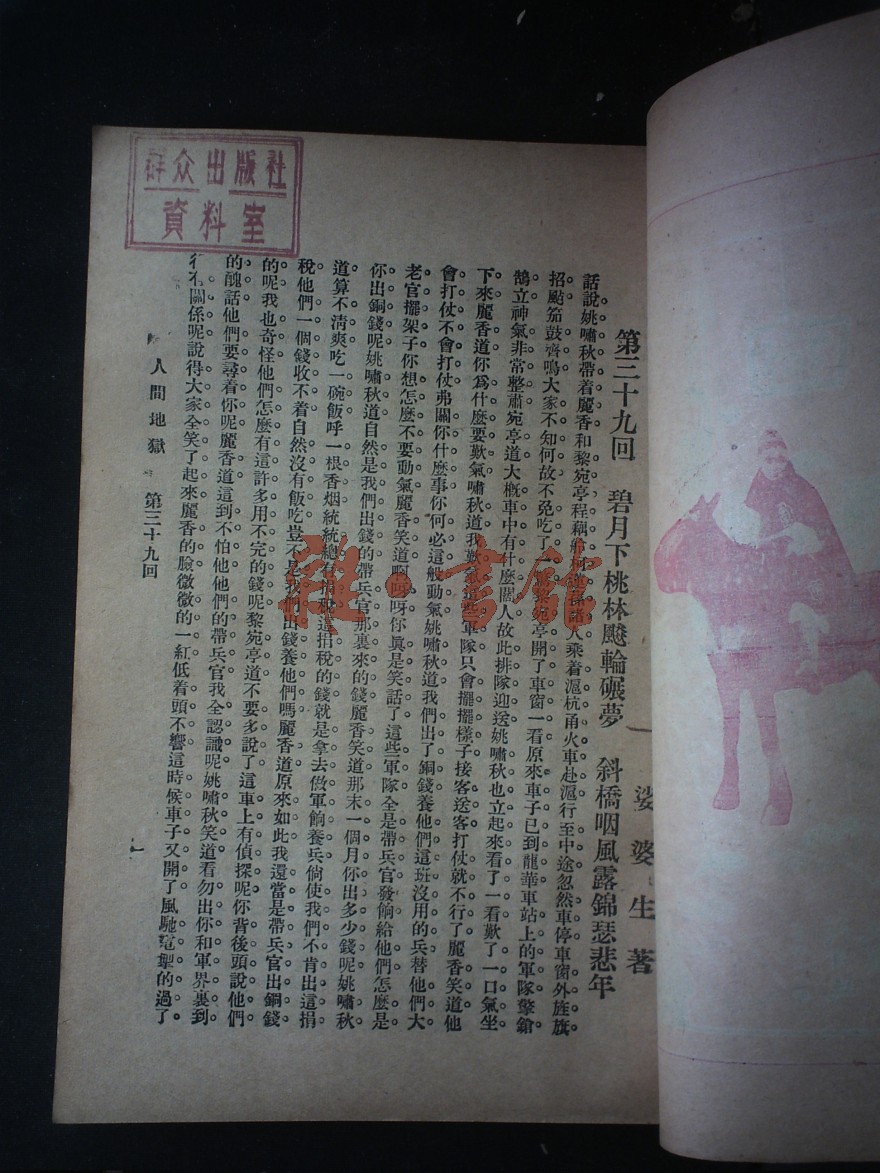 群众出版社
資料室
娑婆生著
第三十九回 碧月下桃林飇輪碾夢 斜橋咽風露錦瑟悲年
話說姚嘯秋帶着麗香和黎宛亭程藕舲 諸人乘着滬杭甬火車赴滬行至中途忽然車停車窗外旌旗
招颭笳鼓齊鳴大家不知何故不免吃了一驚黎宛亭開了車窗一看原來車子已到龍華車站上的軍隊擎鎗
鵠立神氣非常整肅宛亭道大槪車中有什麼闊人故此排隊迎送姚嘯秋也立起來看了一看歎了一口氣坐
下來麗香道你爲什麼要歎氣嘯秋道我歎氣這些軍隊只會擺擺樣子接客送客打仗就不行了麗香笑道他
會打仗不會打仗弗關你什麼事你何必這般動氣姚嘯秋道我們出了銅錢養他們這班沒用的兵替他們大
老官擺架子你想怎麼不要動氣麗香笑道啊呀呀你眞是笑話了這些軍隊全是帶兵官發餉給他們怎麼是
你出銅錢呢姚嘯秋道自然是我們出錢的帶兵官那裏來的錢麗香笑道那末一個月你出多少錢呢姚嘯秋
道算不清爽吃一碗飯呼一根香烟統統總有捐稅這捐稅的錢就是拿去做軍餉養兵倘使我們不肯出這捐
稅他們一個錢收不着自然沒有飯吃豈不是我們出錢養他們嗎麗香道原來如此我還當是帶兵官出銅錢
的呢我也奇怪他們怎麼有這許多用不完的錢呢黎宛亭道不要多說了這車上有偵探呢你背後頭說他們
的醜話他們要尋着你呢麗香道這到不怕他他們的帶兵官我全認識呢姚嘯秋笑道看勿出你和軍界裏到
很有關係呢說得大家全笑了起來麗香的臉微微的一紅低着頭不響這時候車子又開了風馳電掣的過了
人間地獄 第三十九回
一
雅·書館